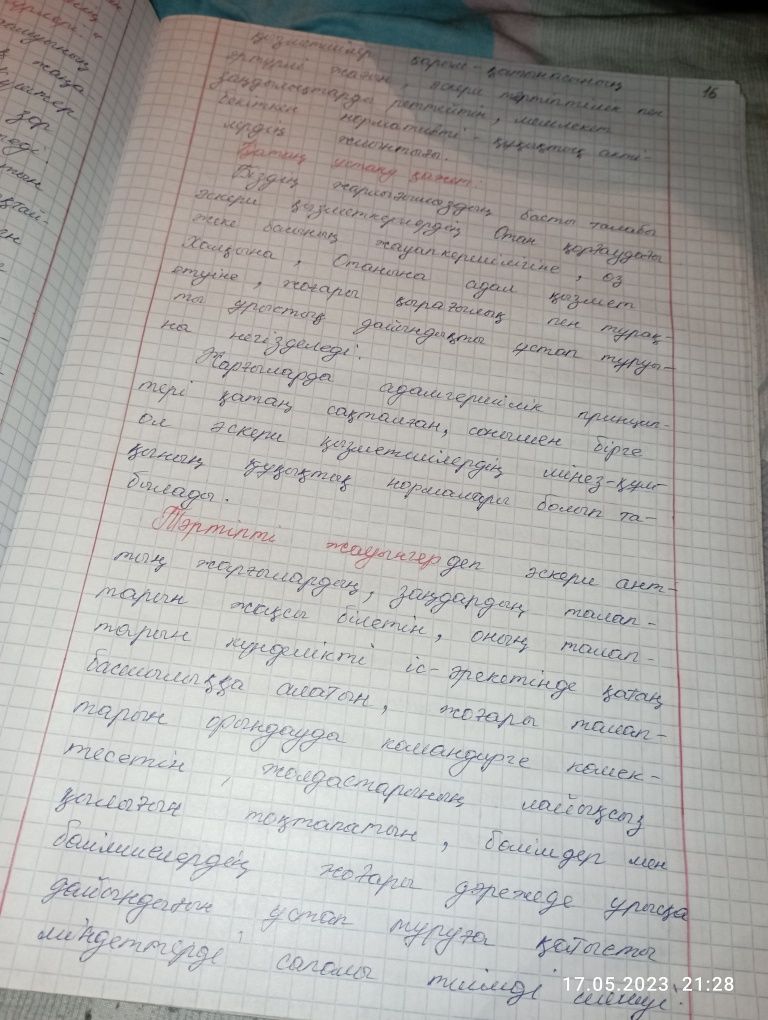 16
қызметшілер қарым-қатынасының
әртүрлі жағын, әскери тәртіптілік пен
заңдылықтарда реттейтін, мемлекет
бекіткен нормативті-құқықтық акті-
лердің жиынтығы.
Қатаң ұстану қажет.
Біздің жарғымыздың басты талабы
әскери қызметкерлердің Отан қорғаудағы
жеке басының жауапкершілігіне, өз
Халқына, Отанына адал қызмет
етуіне, жоғары қырағылық пен тұрақ-
ты ұрыстық дайындықты ұстап тұруы-
на негізделеді.
Жарғыларда адамгершілік принцип-
тері қатаң сақталған, сонымен бірге
ол әскери қызметшілердің мінез-құлі
қының құқықтық нормалары болып та-
былады.
Тәртіпті жауынгер деп әскери ант-
тың жарғылардың, заңдардың талап-
тарын жақсы білетін, оның талап-
тарын күнделікті іс-әрекетінде қатаң
басшылыққа алатын, жоғары талап-
тарын орындауда командирге көмек-
тесетін, жолдастарының лайықсыз
қылығын тоқтататын, бөлімдер мен
бөлімшелердің жоғары дәрежеде ұрысқа
дайындығын ұстап тұруға қатысты
міндеттерде сапалы тиімді
17.05.2023 21:28